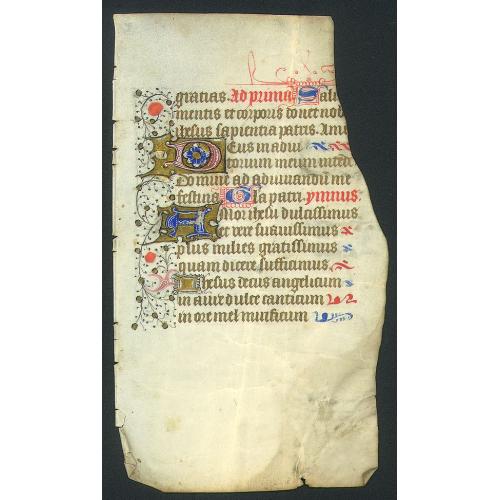 gratias. Ad prima Sal
mentis et corporis donet nob
ihesus sapientia patris. Am
Deus in adiu
torium meum intēde
Domine ad adiuvandū me
festina Gla patri. ymnus.
Amor ihesu dulcissimus
et vere suavissimus
plus milies gratissimus
quam dicere sufficimus
Ihesus decus angelicum
in aure dulce canticum
in ore mel mirificum